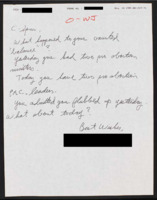 O-NJ
C-Span,
What happened to your vaunted
"balance"
Yesterday you had two pro abortion
Today you have two pro abortion
leaders.
You admitted you flubbed up yesterday.
What about today?
Best Wishes,